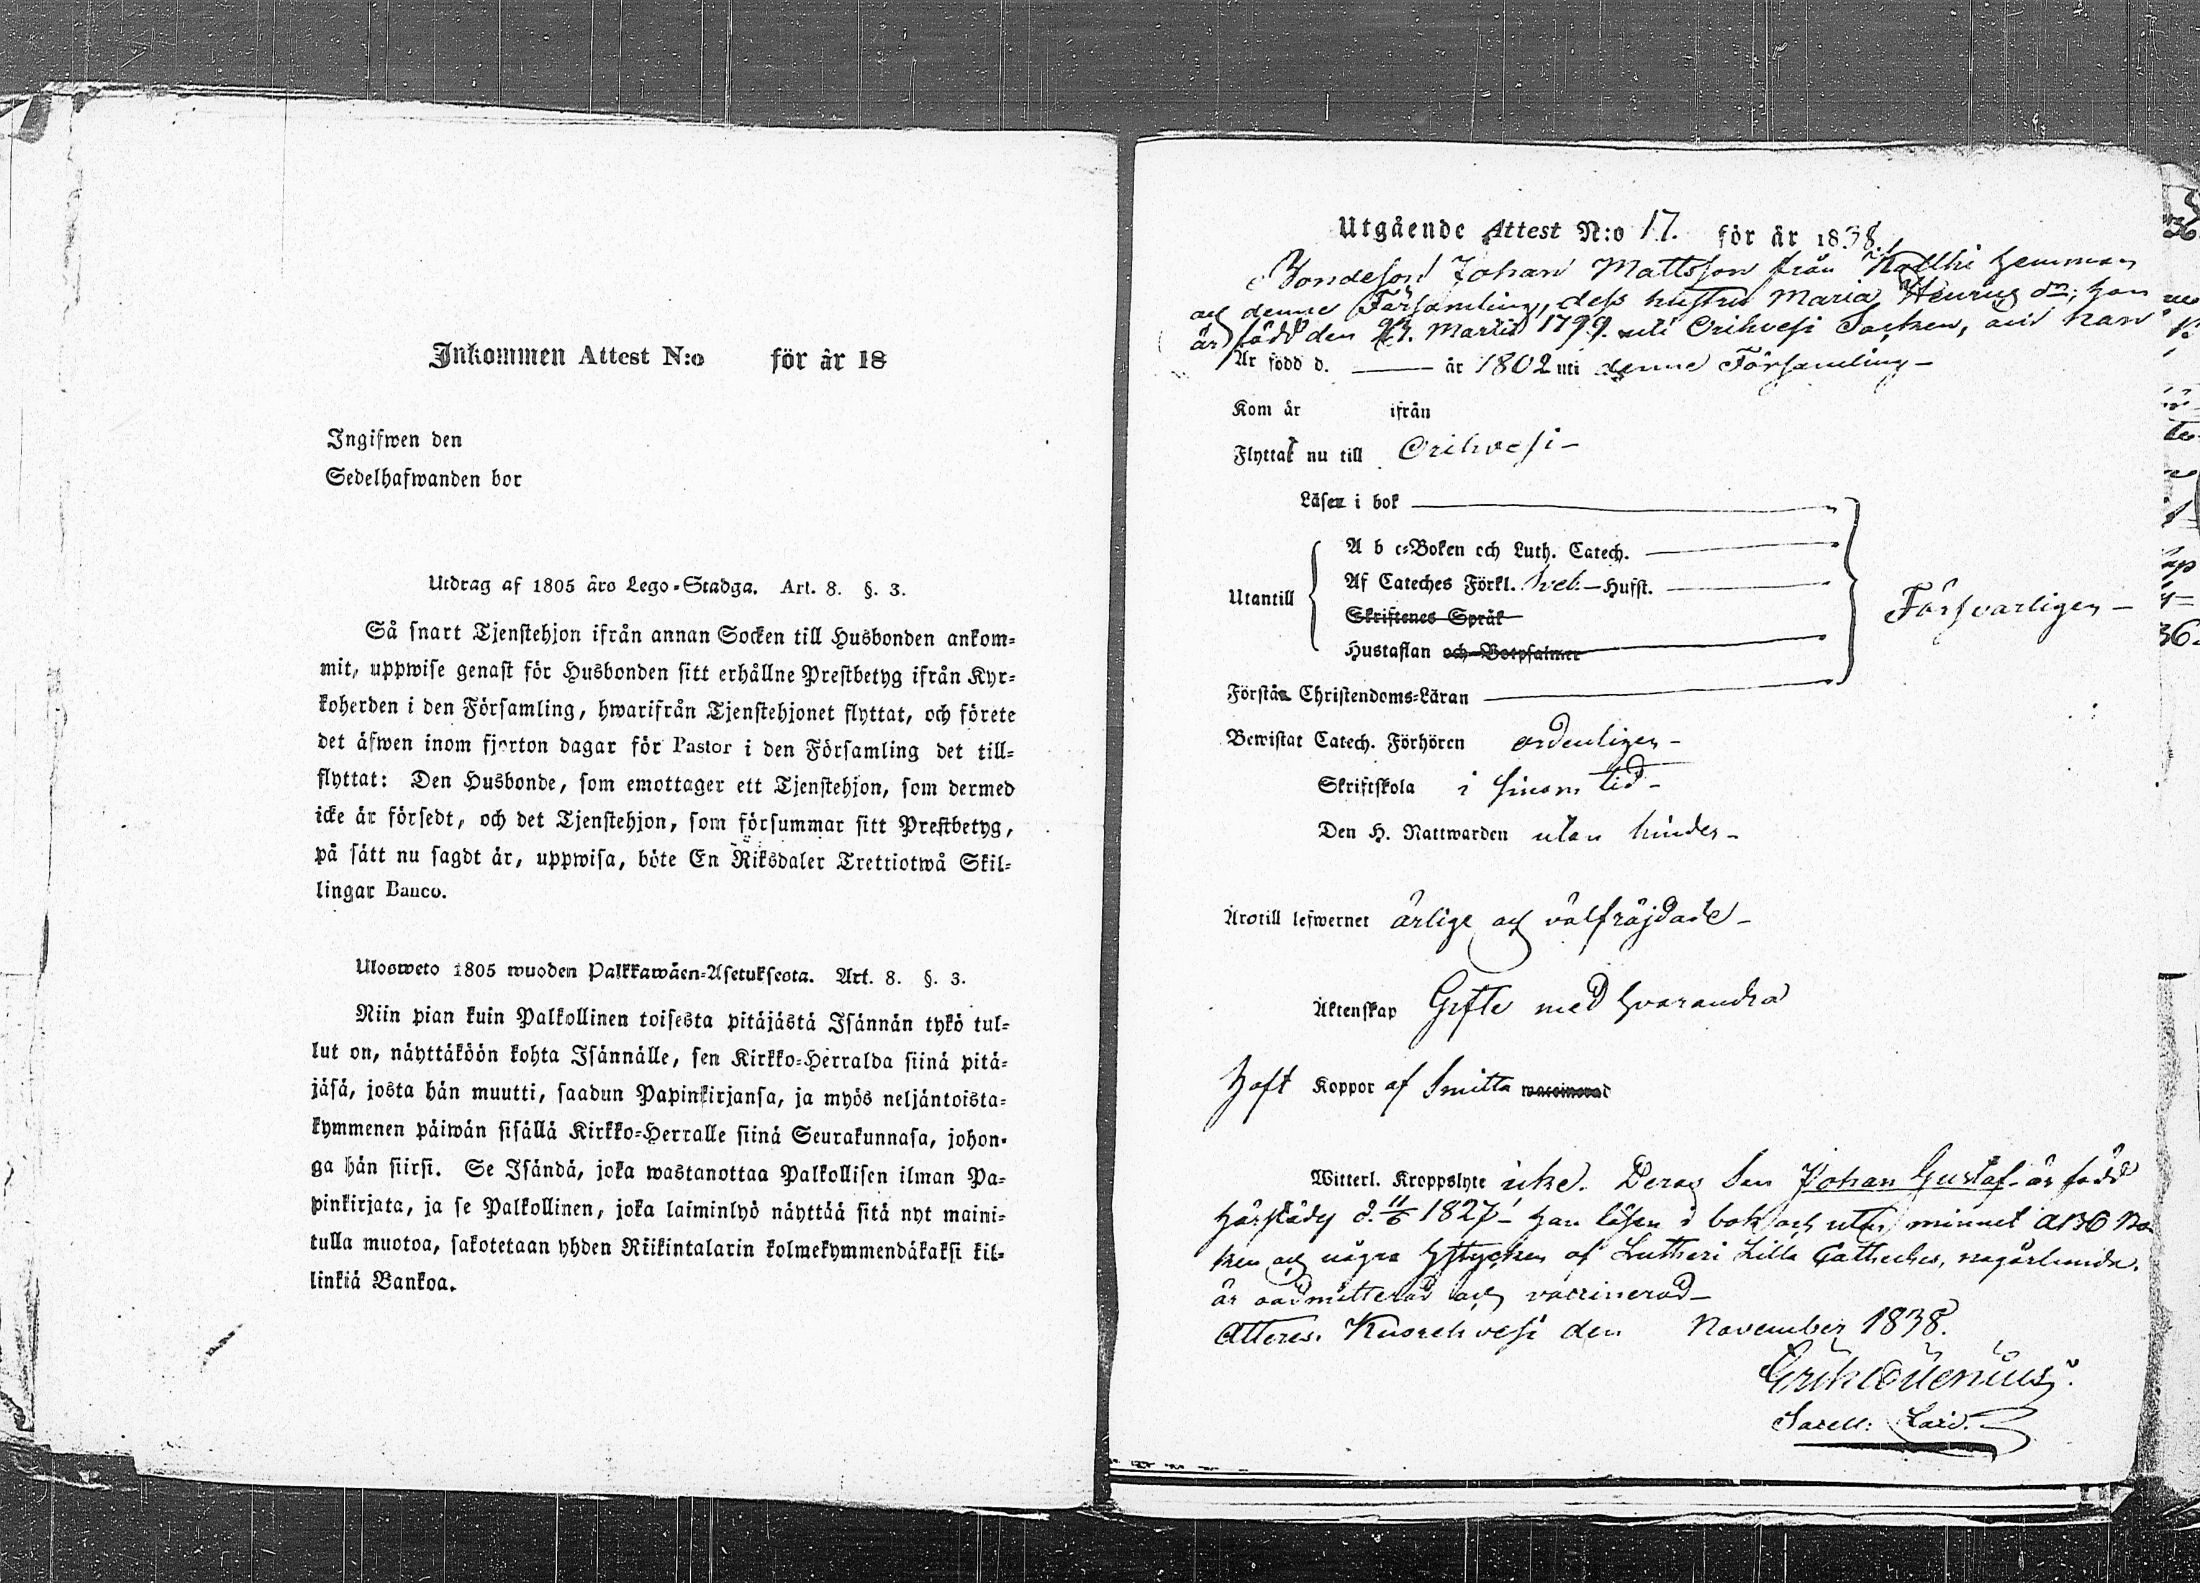 Inkommen Attest N:o för år 18
Ingifwen den
Sedelhafwanden bor
Utdrag af 1805 års Lego-Stadga. Art. 8. §. 3.
Så snart Tjenstehjon ifrån annan Socken till Husbonden ankom-
mit, uppwise genast för Husbonden sitt erhållne Prestbetyg ifrån Kyr-
koherden i den Församling, hwarifrån Tjenstehjonet flyttat, och förete
det äfwen inom fjorton dagar för Pastor i den Församling det till-
flyttat: Den Husbonde, som emottager ett Tjenstehjon, som dermed
icke är försedt, och det Tjenstehjon, som försummar sitt Prestbetyg,
på sätt nu sagdt är, uppwisa, böte En Riksdaler Trettiotwå Skil-
lingar Banco.
Ulosweto 1805 wuoden Palkkawäen-Asetuksesta. Art. 8. §. 3.
Niin pian kuin Palkollinen toisesta pitäjästä Isännän tykö tul-
lut on, näyttäköön kohta Isännälle, sen Kirkko-Herralda siinä pitä-
jäsä, josta hän muutti, saadun Papinkirjansa, ja myös neljäntoista-
kymmenen päiwän sisällä Kirkko-Herralle siinä Seurakunnasa, johon-
ga hän siirsi. Se Isändä, joka wastanottaa Palkollisen ilman Pa-
pinkirjata, ja se Palkollinen, joka laiminlyö näyttää sitä nyt maini-
tulla muotoa, sakotetaan yhden Riikintalarin kolmekymmendäkaksi kil-
linkiä Bankoa.
Utgående Attest N:o 17. för år 1838.
Bondeson Johan Mattsson från Kallki hemman
och denne Församling, dess hustru Maria Henrics dr; han
är född den Martii 1799 uti Orihvesi Socken, och hon
Är född d. — år 1802 uti denne Församling –
Kom år ifrån
Flyttat nu till Orihvesi –
Läser i bok
A b c-Boken och Luth. Catech.
Utantill Af Cateches Förkl. Sveb. – Husst. Försvarligen –
Skriftenes Språk
Hustaflan och Botpsalmer
Förstår Christendoms-Läran
Bewistat Catech. Förhören ordenligen –
Skriftskola i sinom tid –
Den H. Nattwarden utan hinder –
Äro till lefwernet ärlige och välfräjdade –
Äktenskap Gifte med hvarandra
Haft Koppor af Smitta waccinerad
Witterl. Kroppslyte icke. Deras Son Johan Gustaf är född
härstädes d. 11/6 1827 – han läser i bok och utur minnet ABC Bo
ken och några Hstycken af Lutheri Lilla Catheches, någorlunda.
är oadmitterad och vaccinerad –
Atteres. Kuorehvesi den November 1838.
Erik
Sacell: